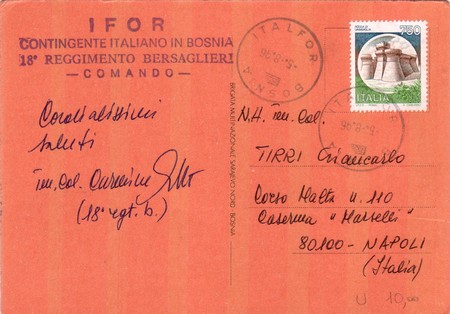 IFOR
CONTINGENTE ITALIANO IN BOSNIA
18° REGGIMENTO BERSAGLIERI
— COMANDO —
ITALFOR
BOSNIA
750
ITALIA
ITALFOR
Cordialissimi
saluti
Ten. Col. Carmine
(18° rgt. b.)
BRIGATA MULTINAZIONALE SARAJEVO NORD - BOSNIA
N.H. Ten. Col.
TIRRI Giancarlo
Corso Malta n. 110
Caserma "Marselli"
80100 - NAPOLI
(Italia)
10,00